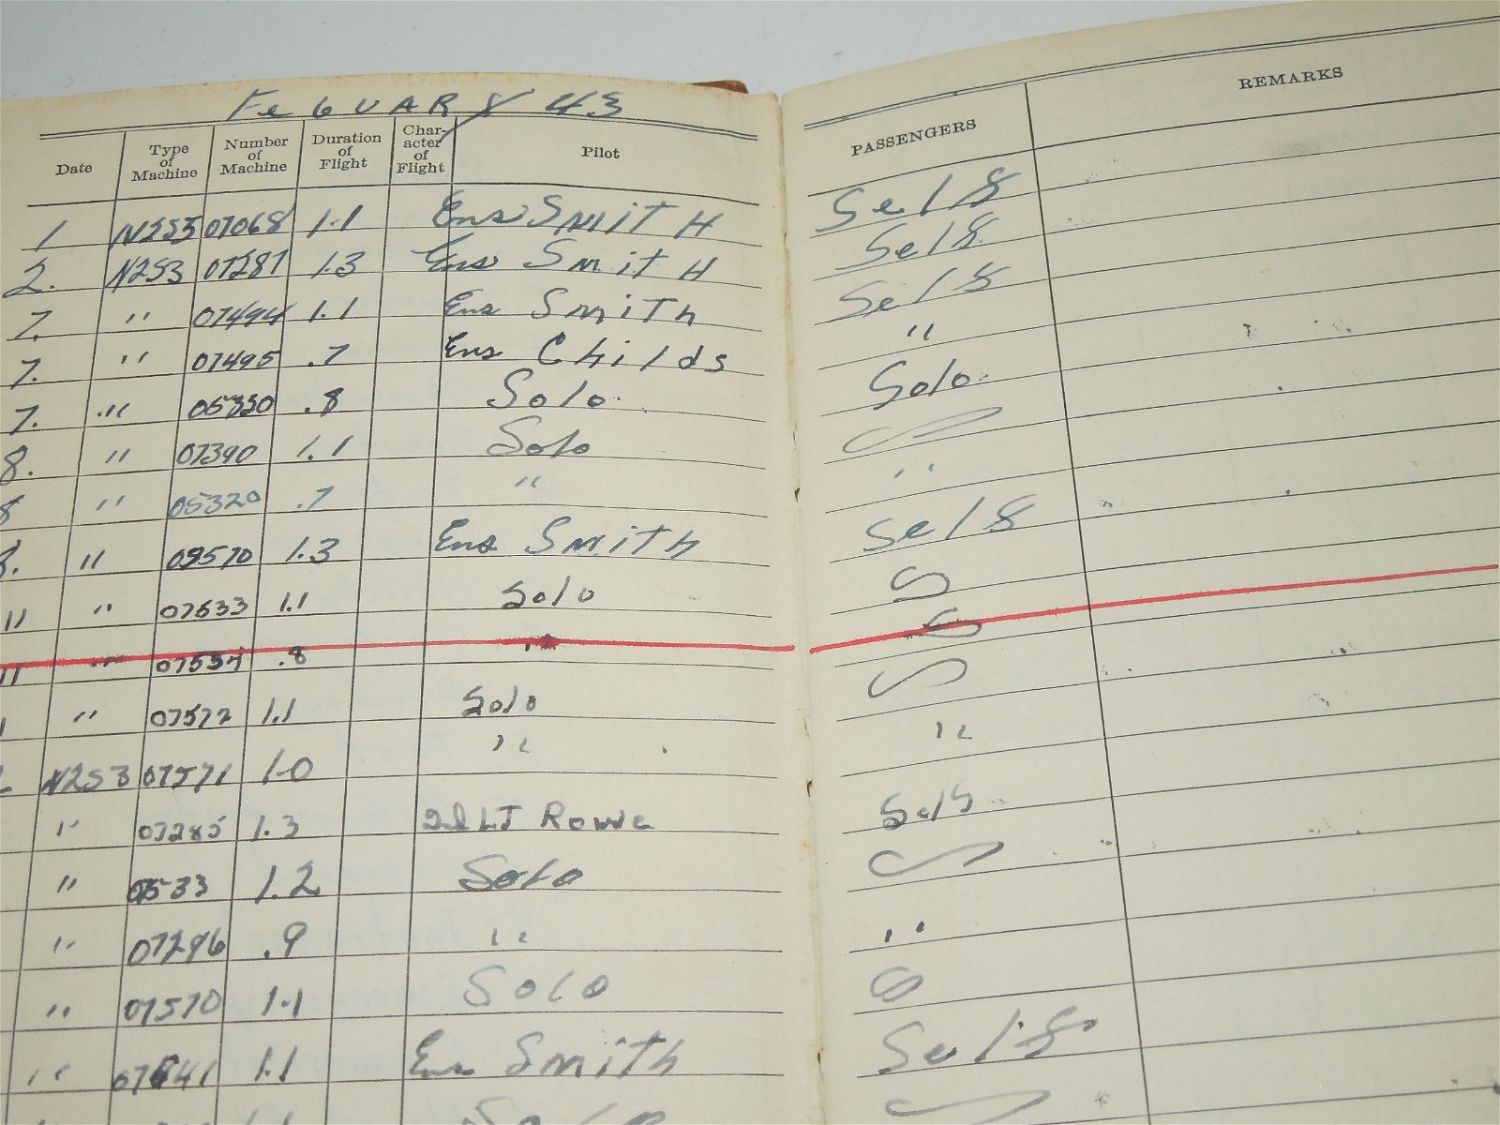 FebUARY 43
Date Type of Machine Number of Machine Duration of Flight Character of Flight Pilot PASSENGERS REMARKS
1 N2S3 07068 1.1 Ens SmitH Self
2. N2S3 07287 1.3 Ens SmitH Self
7. " 07494 1.1 Ens Smith Self
7. " 07495 .7 Ens Childs "
7. " 05330 .8 Solo Solo
8. " 07390 1.1 Solo S
8 " 05320 .7 " "
" 1.3 Ens Smith Self
11 " 07633 1.1 Solo S
11 " 07534 .8 " S
" 07572 1.1 Solo S
N2S3 07571 1.0 " "
" 07285 1.3 2d LT Rowe Self
" 1.2 Solo S
" 07296 .9 " "
" 07570 1.1 Solo S
" 07641 1.1 Ens Smith Self
Solo S